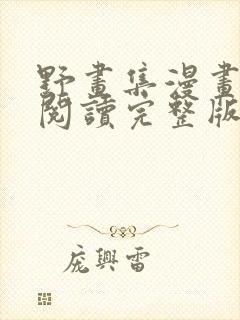 野畫集漫畫
閱讀完整版
庞興雷